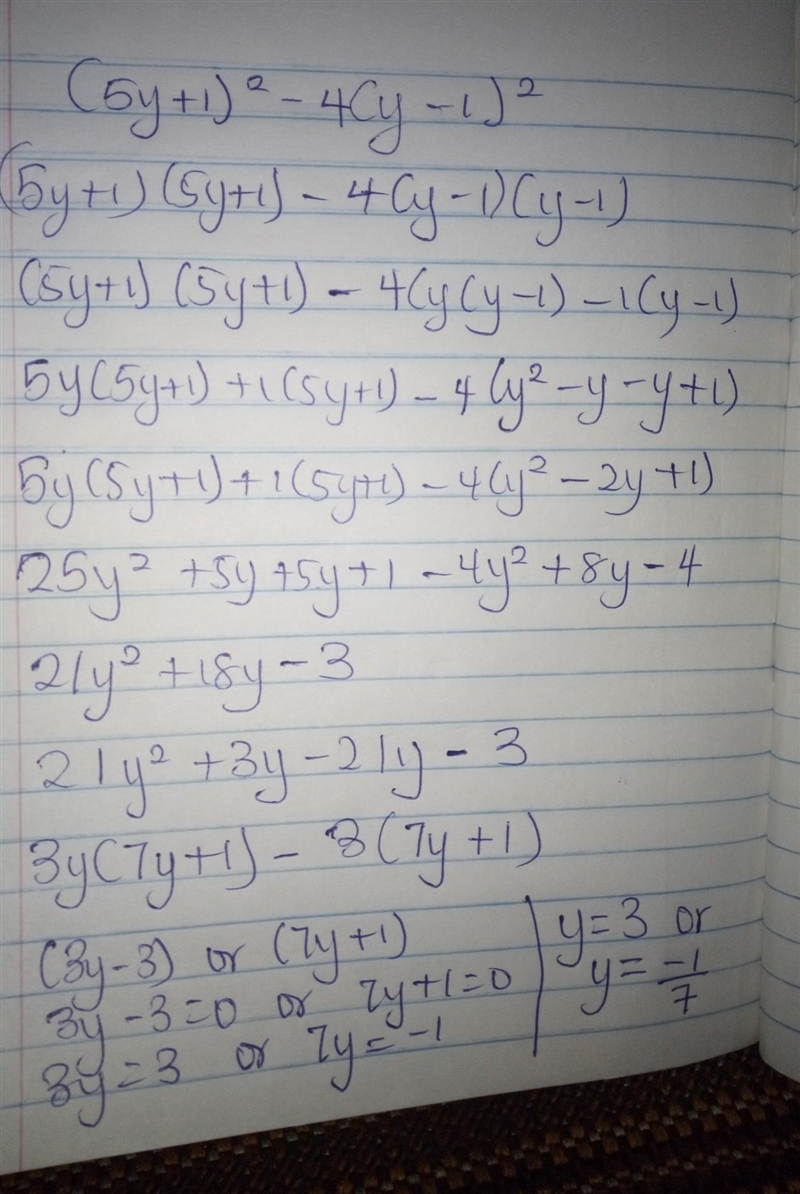 (5y+1)² - 4(y-1)²
(5y+1)(5y+1) - 4(y-1)(y-1)
(5y+1)(5y+1) - 4(y(y-1) - 1(y-1)
5y(5y+1) + 1(5y+1) - 4(y² - y - y + 1)
5y(5y+1) + 1(5y+1) - 4(y² - 2y + 1)
25y² + 5y + 5y + 1 - 4y² + 8y - 4
21y² + 18y - 3
21y² + 3y - 21y - 3
3y(7y+1) - 3(7y+1)
(3y-3) or (7y+1)
3y - 3 = 0 or 7y + 1 = 0
3y = 3 or 7y = -1
y = 3 or
y = -1/7